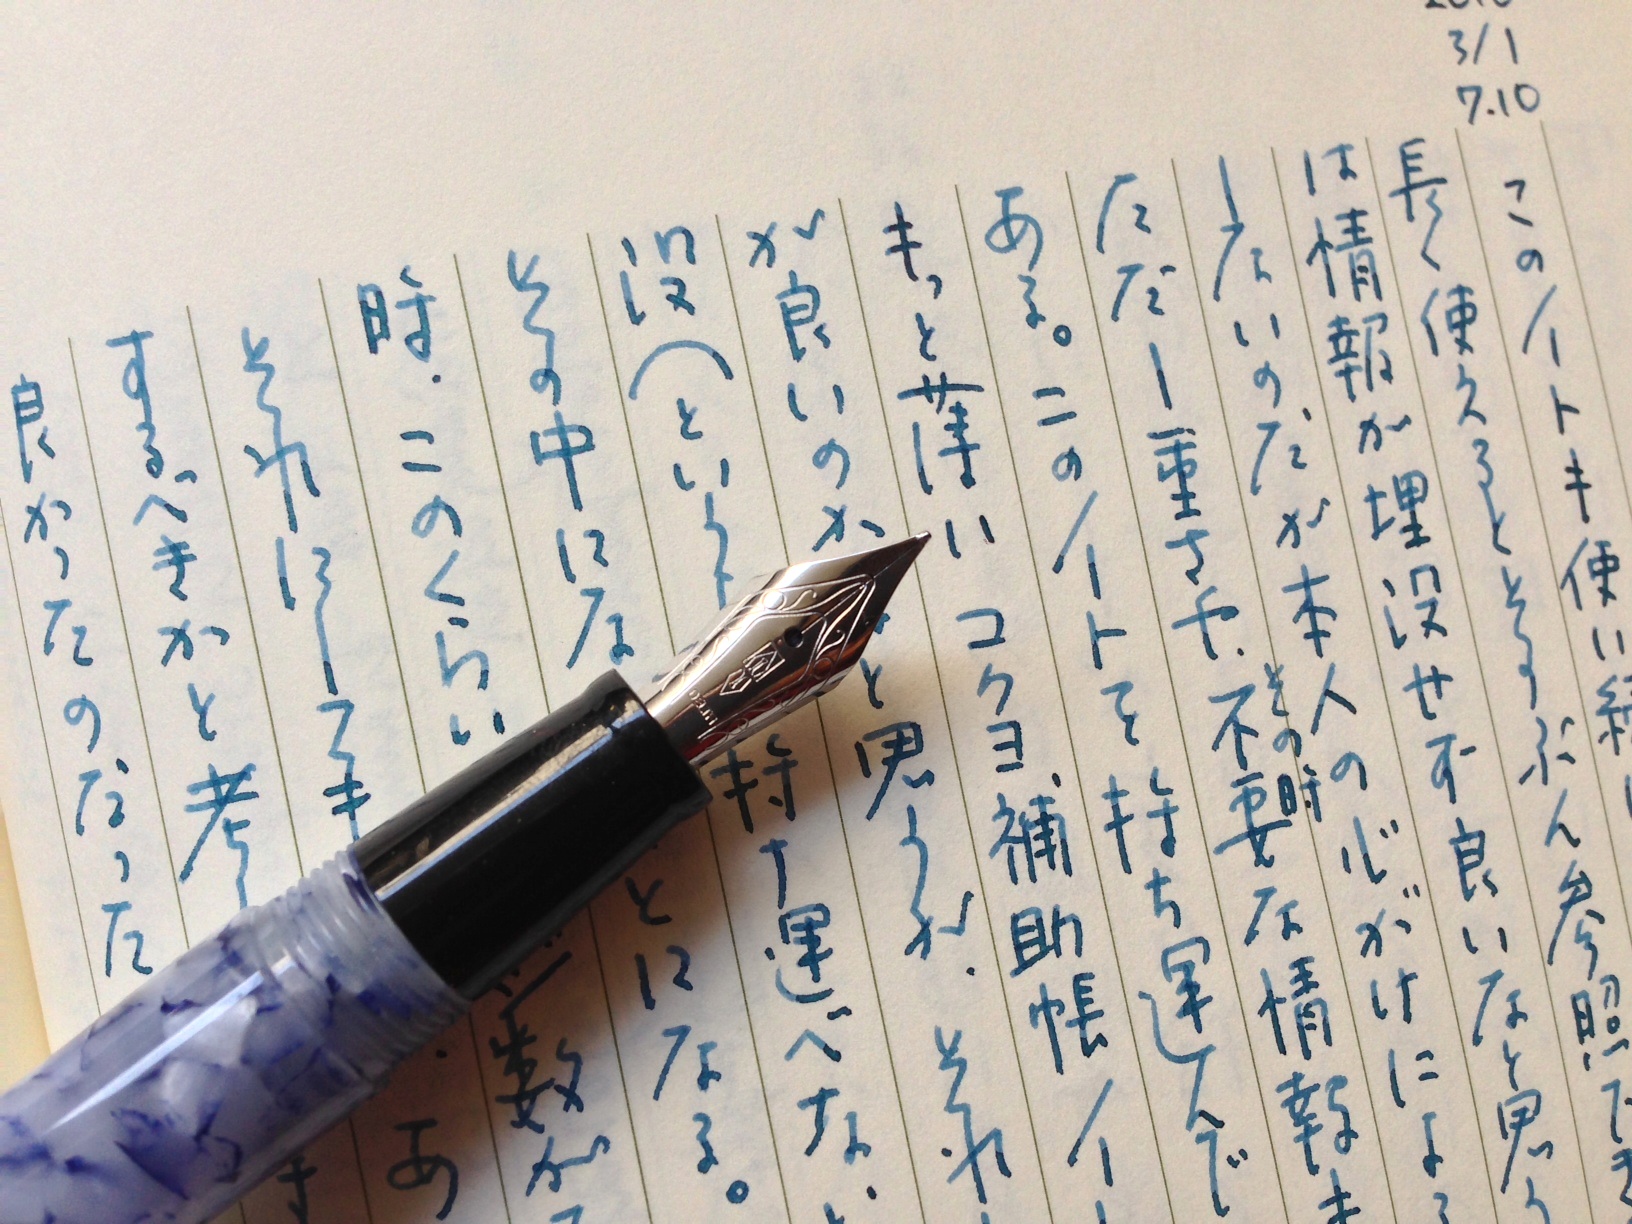 3/1
7.10
このノートキ使い続
長く使えるとそのぶん参照
は情報が埋没せず良いなと思う
しないのだが本人の心がけによる
その時
ただ重さや、不要な情報ま
ただ一重さや
ある。このノートを持ち運んで
もっと薄い コクヨ、補助帳ノー
が良いのか と思うが、それ
没(という 持ち運べない
その中にな とになる。
時、このくらい 数が
それにしてき あ
するべきかと考
良かったのだった